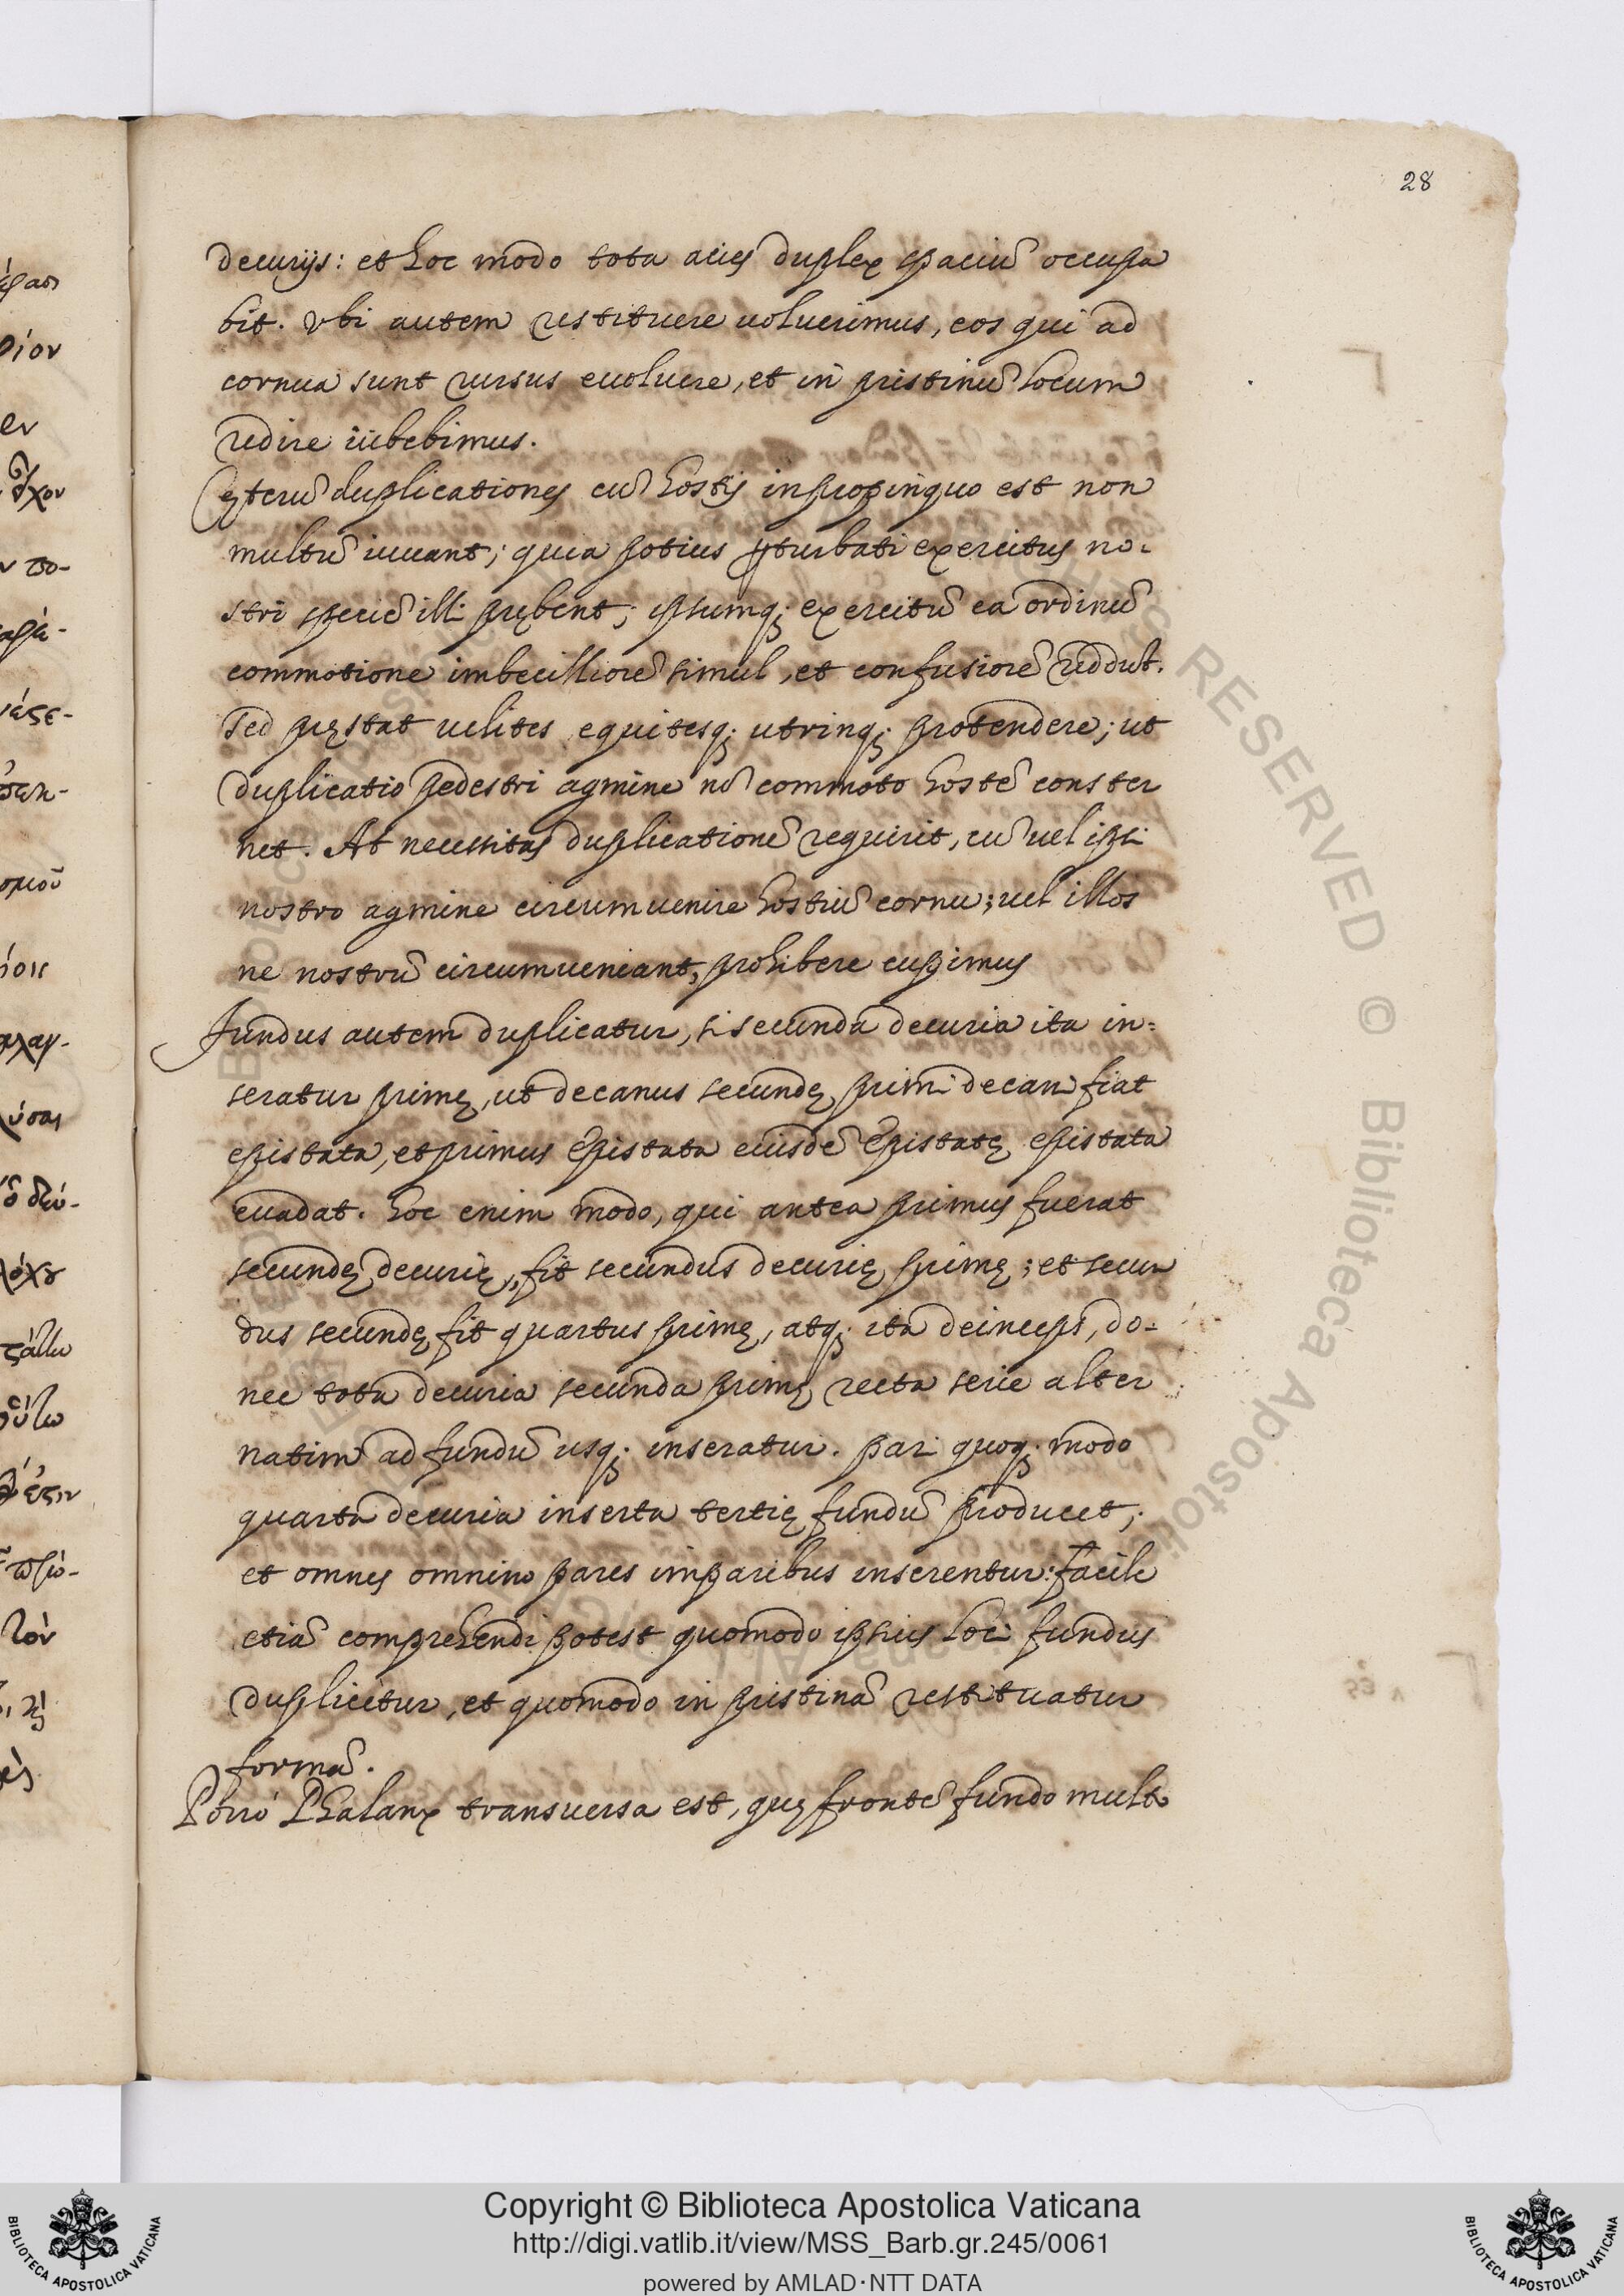 28
decurijs: et hoc modo tota acies duplex spaciũ occupa
bit. vbi autem restituere uoluerimus, eos qui ad
cornua sunt rursus euoluere, et in pristinũ locum
redire iubebimus.
Cęterũ duplicationes cũ hostis inpropinquo est non
multũ iuuant; quia potius ꝑturbati exercitus no-
stri speciẽ illi prębent; ipsumq; exercitũ ea ordinũ
commotione imbecilliorẽ simul, et confusiorẽ reddũt.
Sed pręstat uelites equitesq; utrinq; protendere; ut
duplicatio pedestri agmine nõ commoto hostẽ conster
net. At necessitas duplicationẽ requirit, cũ uel ipsi
nostro agmine circumuenire hostiũ cornu; uel illos
ne nostrũ circumueniant, prohibere cupimus
Fundus autem duplicatur, si secunda decuria ita in=
seratur primę, ut decanus secundę primi decani fiat
epistata, et primus Epistata eiusdẽ Epistatę epistata
euadat. hoc enim modo, qui antea primus fuerat
secundę decurię, fit secundus decurię primę; et secun
dus secundę fit quartus primę, atq; ita deinceps, do-
nec tota decuria secunda primę recta serie alter
natim ad fundũ usq; inseratur. pari quoq; modo
quarta decuria inserta tertię fundũ producet;
et omnes omnino pares imparibus inserentur: facile
etiã comprehendi potest quomodo ipsius loci fundus
duplicetur, et quomodo in pristinã restituatur
formã.
Porrò Phalanx transuersa est, quę frontẽ fundo multo
Copyright © Biblioteca Apostolica Vaticana
http://digi.vatlib.it/view/MSS_Barb.gr.245/0061
powered by AMLAD·NTT DATA
BIBLIOTECA APOSTOLICA VATICANA
BIBLIOTECA APOSTOLICA VATICANA